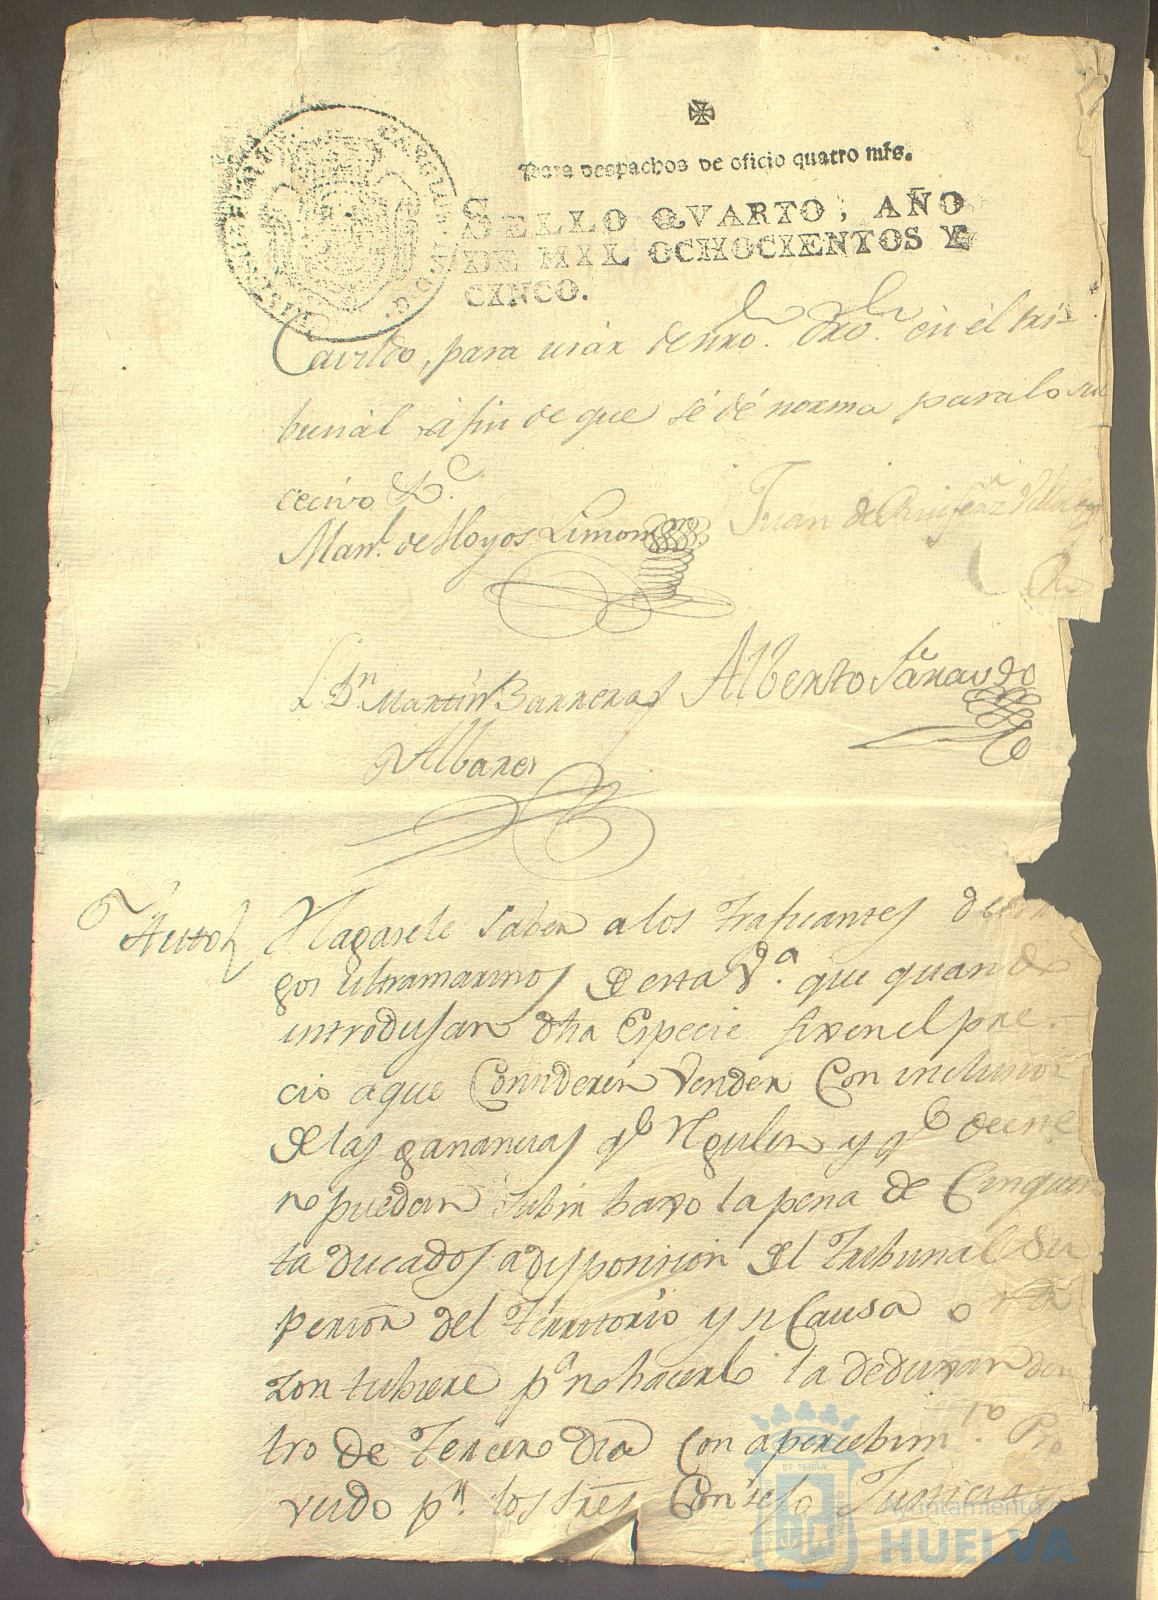 Para despachos de oficio quatro mrs.
SELLO QVARTO, AÑO
DE MIL OCHOCIENTOS Y
CINCO.
Cavildo, para usar de nro. dro. en el tri-
bunál á fin de que sé dé norma para lo su
cecivo &c.
Manl. de Hoyos Limon Juan de
L. Dn. Martin Barreras Alberto
Albares
Auto Hagasele saber a los traficantes de
gos ultramarinos de esta va. que quando
introdusan dha Especie fixen el pre-
cio a que Consideren vender Con inclusion
de las ganancias qe regulen y qe de ese
no puedan subir baxo la pena de Cinquen
ta ducados a disposicion del tribunal Su
perior del territorio y si Causa o ra
zon tubiere pa. no hacerlo la deduxan den
tro de tercero dia Con apercebimto. Pro
veido pr. los sres Consejo Justicia y
Ayuntamiento de
HUELVA